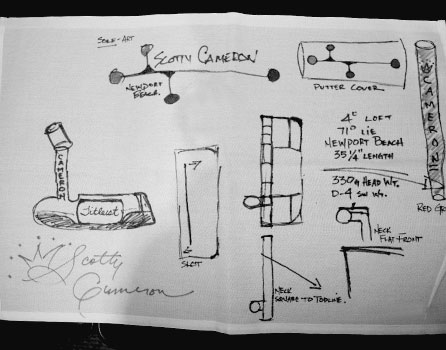 SOLE-ART
SCOTTY CAMERON
NEWPORT
BEACH.
PUTTER COVER
CAMERON
4° LOFT
71° LIE
NEWPORT BEACH
35 1/4" LENGTH
330g HEAD WT.
D-4 SW WT.
RED
CAMERON
Titleist
SLOT
NECK
FLAT FRONT
NECK
SQUARE TO TOPLINE.
Scotty
Cameron